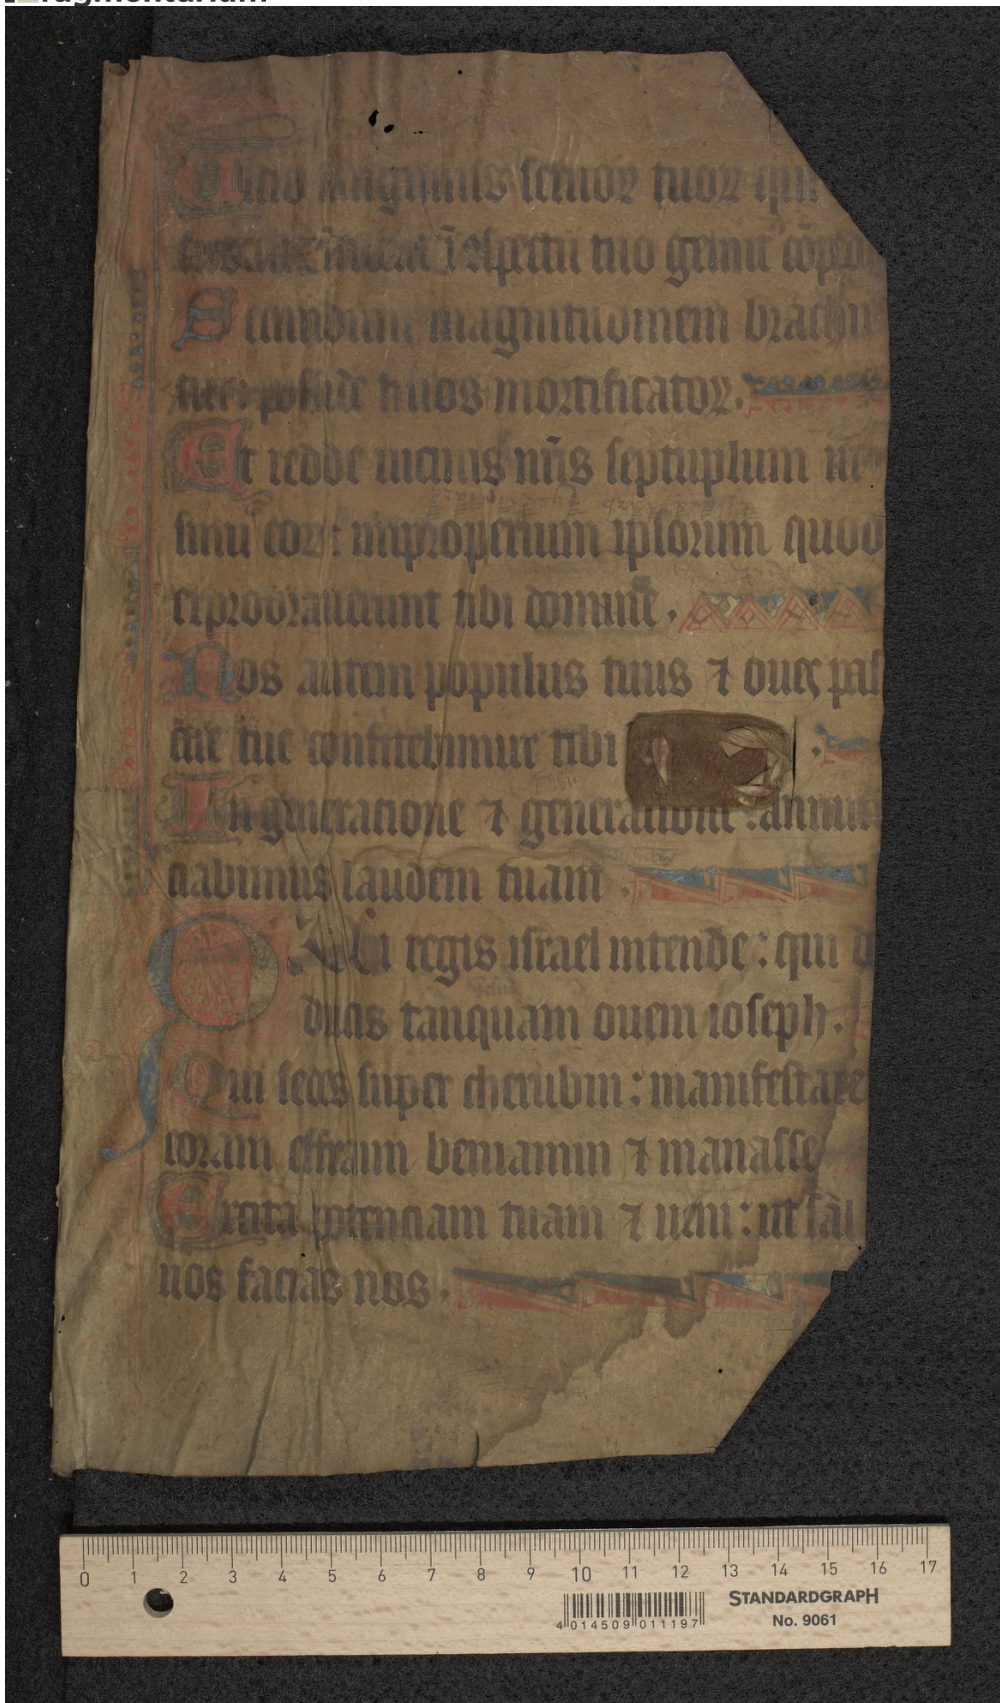 Ultio sanguinis seruoꝝ tuoꝝ qui
introeat ī ↄspectu tuo gemit⁹ cōpedi
Secundum magnitudinem brachii
tui: posside filios mortificatoꝝ.
Et redde uicinis nr̄is septuplum in
sinu eoꝝ: improperium ipsorum quod
exprobrauerunt tibi domine.
Nos autem populus tuus ⁊ oues pas
cue tue confitebimur tibi
In generatione ⁊ generatione: annun
ciabimus laudem tuam.
Qui regis israel intende: qui d
ducis tanquam ouem ioseph.
Qui sedes super cherubin: manifestare
coram effraim beniamin ⁊ manasse
Excita potenciam tuam ⁊ ueni: ut sal
nos facias nos.
0 1 2 3 4 5 6 7 8 9 10 11 12 13 14 15 16 17
4 014509 011197
STANDARDGRAPH
No. 9061